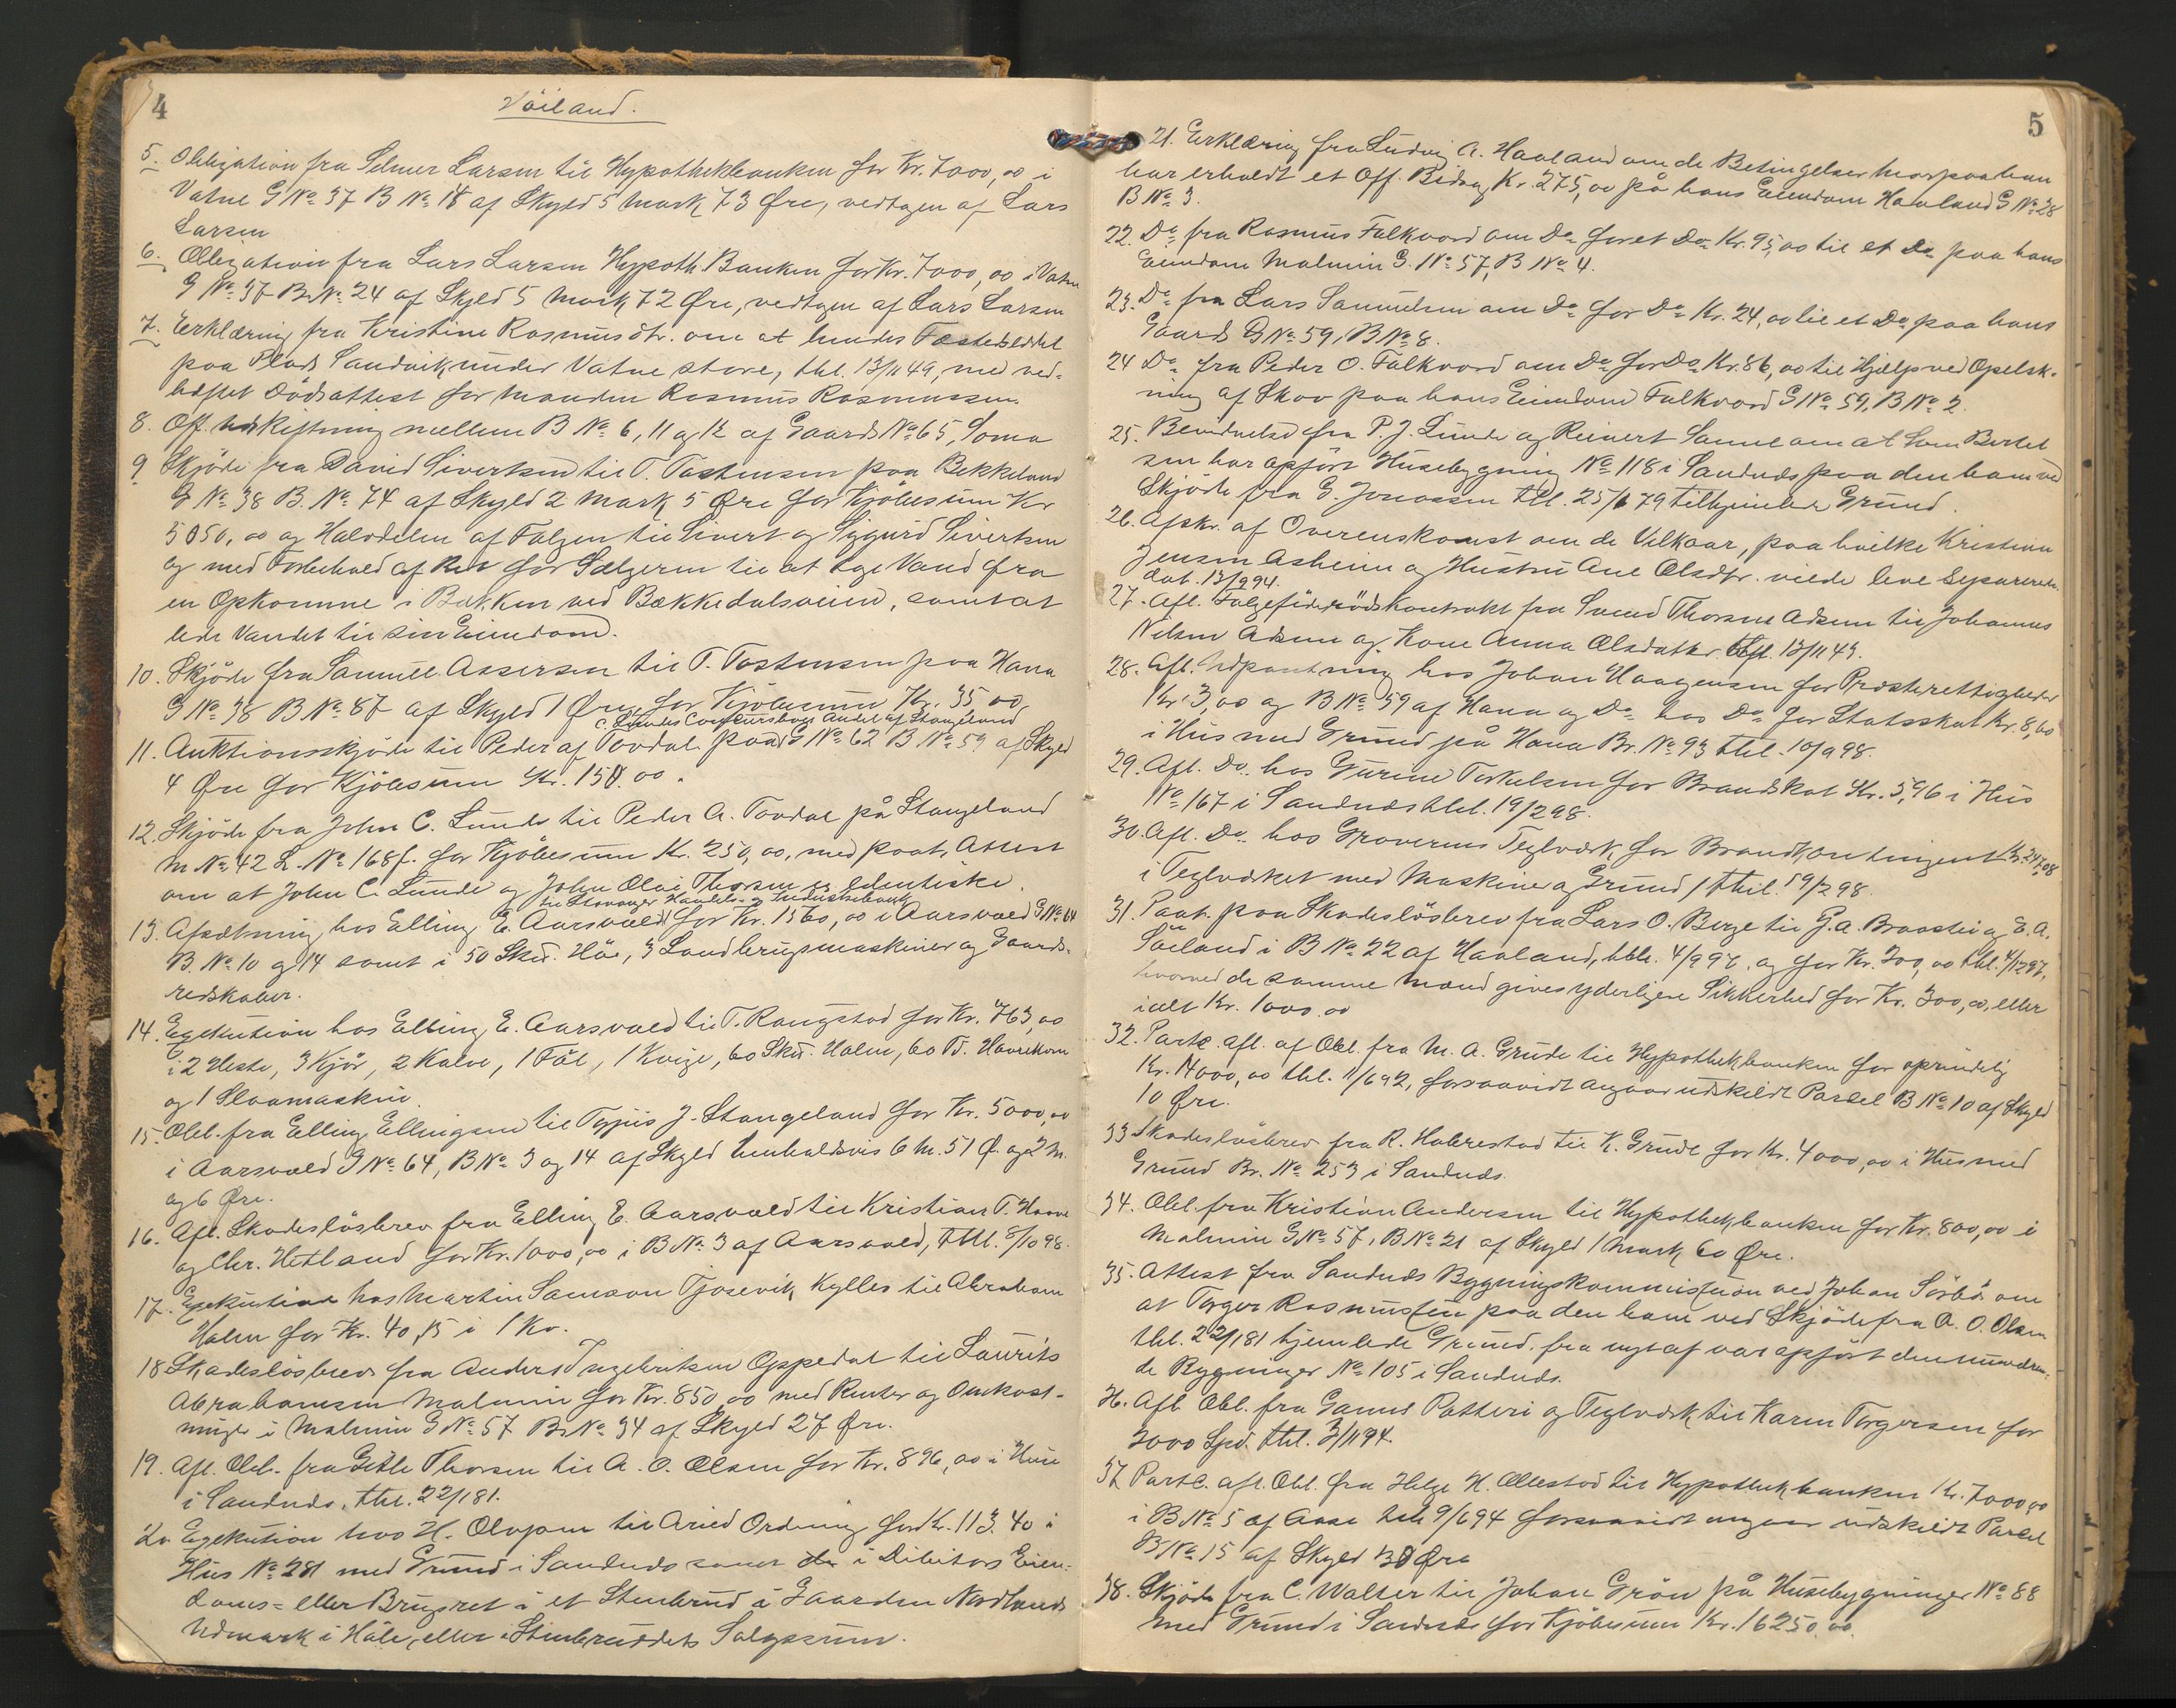 4
Vöiland.
5. Obligation fra Selmer Larsen til Hypothekbanken for Kr. 7000,00 i
Vatne G No. 37 B No. 18 af Skyld 5 Mark 73 Øre, vedtagen af Lars
Larsen
6. Obligation fra Lars Larsen Hypoth. Banken for Kr. 7000,00 i Vatne
G No. 37 B. No. 24 af Skyld 5 Mark 72 Øre, vedtagen af Lars Larsen
7. Erklæring fra Kristine Rasmusdtr. om at hendes Fæsteseddel
paa Plads Sandvik under Vatne store, thl. 13/11 49, med ved-
hæftet Dödsattest for Manden Rasmus Rasmussen
8. Off. Udskiftning mellem B No. 6, 11 og 12 af Gaards No. 65, Soma
9 Skjöde fra David Sivertsen til T. Tostensen paa Bekkeland
G No. 38 B. No. 74 af Skyld 2 Mark 5 Øre for Kjöbesum Kr
5050,00 og Halvdelen af Falgen til Sivert og Sigurd Sivertsen
og med Forbehold af Ret for Sælgeren til at tage Vand fra
en Opkomme i Bakken ved Bækkedalsveien, samt at
lede Vandet til sin Eiendom.
10. Skjöde fra Samuel Assersen til T. Tostensen paa Hana
G No. 38 B No. 87 af Skyld 1 Øre, for Kjöbesum Kr. 35,00
C. Lundes Concursbos Andel af Stangeland
11. Auktionsskjöde til Peder af Tovdal paa G No. 62 B No. 59 af Skyld
4 Øre for Kjöbesum Kr. 150.00.
12. Skjöde fra John C. Lunde til Peder A. Tovdal på Stangeland
M No. 42 L. No. 168f. for Kjöbesum Kr. 250,00, med paat. Attest
om at John C. Lunde og John Olai Thorsen er identiske.
til Stavanger Handels- og Industribank
13. Afsætning hos Elling E. Aarsvold for Kr. 1560,00 i Aarsvold G No. 64
B. No. 10 og 14 samt i 50 Skd. Hö, 3 Landbrugsmaskiner og Gaards-
redskaber.
14. Exekution hos Elling E. Aarsvold til T. Rangstad for Kr. 763,00
i 2 Heste, 3 Kjör, 2 Kalve, 1 Föl, 1 Kvige, 60 Skd. Halm, 60 Td. Havrekorn
og 1 Slaamaskin.
15. Obl. fra Elling Ellingsen til Tönis J. Stangeland for Kr. 5000,00
i Aarsvold G No. 64, B No. 3 og 14 af Skyld henholdsvis 6 M. 51 Ø. og 2 M.
og 6 Øre.
16. Afl. Skadeslösbrev fra Elling E. Aarsvold til Kristian T. Haave
og Chr. Hetland for Kr. 1000,00 i B No. 3 af Aarsvold, thl. 8/10 98.
17. Exekution hos Martin Samson Tjosevik Kylles til Abraham
Holen for Kr. 40,15 i 1 Ko.
18 Skadeslösbrev fra Anders Ingebretsen Oppedal til Laurits
Abrahamsen Malmin for Kr. 850,00 med Renter og Omkost-
ninger i Malmin G No. 57 B No. 34 af Skyld 27 Øre.
19. Afl. Obl. fra Gitle Thorsen til A. O. Olsen for Kr. 896,00 i Huse
i Sandnes, thl. 22/1 81.
20 Exekution hos H. Olofson til Aried Ordning for Kr. 113.40 i
Hus No. 281 med Grund i Sandnes samt i Debitors Eien-
doms- eller Brugsret i et Stenbrud i Gaarden Nordlands
Udmark i Hole, eller i Stenbruddets Salgssum.
5
21. Erklæring fra Ludvig A. Haaland om de Betingelser hvorpaa han
har erholdt et Off. Bidrag Kr. 275,00 på hans Eiendom Haaland G No. 28
B No. 3.
22. Do. fra Rasmus Falkvord om Do. for et Do. Kr. 95,00 til et Do. paa hans
Eiendom Malmin G. No. 57, B No. 4.
23. Do. fra Lars Samuelsen om Do. for Do. Kr. 24,00 til et Do. paa hans
Gaard G No. 59, B No. 8.
24 Do. fra Peder O. Falkvord om Do. for Do. Kr. 86,00 til Hjælp ved Opelsk-
ning af Skov paa hans Eiendom Falkvord G No. 59, B No. 2.
25. Bevidnelse fra P. J. Lunde og Reinert Sanne om at Sven Bertel
sen har opfört Husebygning No. 118 i Sandnes paa den ham ved
Skjöde fra G. Jonassen thl. 25/6 79 tilhjemlede Grund.
26. Afskr. af Overenskomst om de Vilkaar, paa hvilke Kristian
Jensen Asheim og Hustru Ane Olsdtr. vilde leve Separerede.
dat. 13/9 94.
27. Afl. Falgeföderådskontrakt fra Svend Thorsen Adsen til Johannes
Nilsen Adsen og Kone Anna Olsdatter. thl. 13/11 49.
28. Afl. Udpantning hos Johan Haagensen for Presterettigheder
Kr. 3,00 og B No. 59 af Hana og Do. hos Do. for Statsskat Kr. 8,60
i Hus med Grund på Hana Br. No. 93 thl. 10/9 98.
29. Afl. Do. hos Gurine Torkelsen for Brandskat Kr. 5,96 i Hus
No. 167 i Sandnes thl. 19/2 98.
30. Afl. Do. hos Graverens Teglværk for Brandkontingent Kr. 247.08
i Teglværket med Maskiner og Grund, thl. 19/2 98.
31. Paat. paa Skadeslösbrev fra Lars O. Berge til G. A. Braastei og E. A.
Söiland i B No. 22 af Haaland, thl. 4/9 97. og for Kr. 700,00 thl. 4/12 97,
hvorved de samme Mænd gives yderligere Sikkerhed for Kr. 300,00, eller
ialt Kr. 1000.00
32. Partc. afl. af Obl. fra M. A. Grude til Hypothekbanken for oprindelig
Kr. 14000,00 thl. 11/6 92, forsaavidt angaar udskildt Parsel B No. 10 af Skyld
10 Øre.
33 Skadeslösbrev fra R. Haberestad til K. Grude for Kr. 4000,00 i Hus med
Grund Br. No. 253 i Sandnes.
34. Obl. fra Kristian Andersen til Hypothekbanken for Kr. 800,00 i
Malmin G No. 57, B No. 21 af Skyld 1 Mark 60 Øre.
35. Attest fra Sandnes Bygningskommission ved Johan Sörbö om
at Torger Rasmussen paa den ham ved Skjöde fra A. O. Olsen
thl. 22/1 81 hjemlede Grund. fra nyt af var opfört den nuværen-
de Bygninger No. 105 i Sandnes.
36. Afl. Obl. fra Gannes Potteri og Teglværk til Karen Torgersen for
3000 Spd. thl. 3/11 94.
37 Partc. afl. Obl. fra Helge H. Ollestad til Hypothekbanken Kr. 7000,00
i B No. 5 af Aase thl. 9/6 94 forsaavidt angaar udskildt Parsel
B No. 15 af Skyld 30 Øre
38. Skjöde fra C. Walter til Johan Grön på Husebygninger No. 88
med Grund i Sandnes for Kjöbesum Kr. 16250.00.